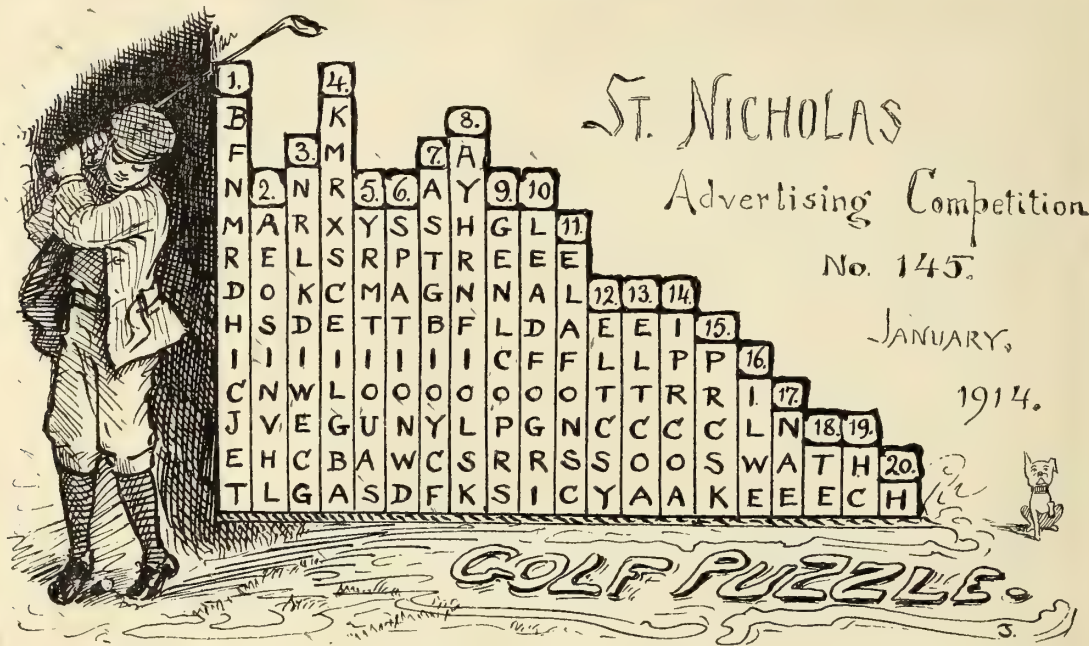 St. Nicholas
Advertising Competition
No. 145.
January,
1914.
1. B F N M R D H I C J E T
2. A E O S I N V H L
3. N R L K D I W E C G
4. K M R X S C E I L G B A
5. Y R M T I O U A S
6. S P A T I O N W D
7. A S T G B I O Y C F
8. A Y H R N F I O L S K
9. G E N L C O P R S
10 L E A D F O G R I
11. E L A F O N S C
12. E L T C S Y
13. E L T C O A
14. I P R C O A
15. P R C S K
16. I L W E
17. N A E
18. T E
19. H C
20. H
GOLF PUZZLE.
J.